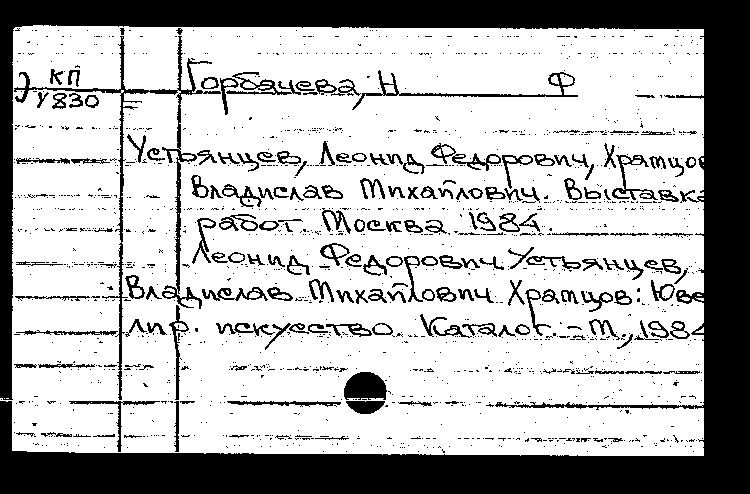 КП
У830
Горбачева, Н Ф
Устьянцев, Леонид Федорович, Храмцов
Владислав Михайлович. Выставка
работ. Москва 1984.
Леонид Федорович Устьянцев,
Владислав Михайлович Храмцов: Юве
лир. искусство. Каталог. – М., 1984